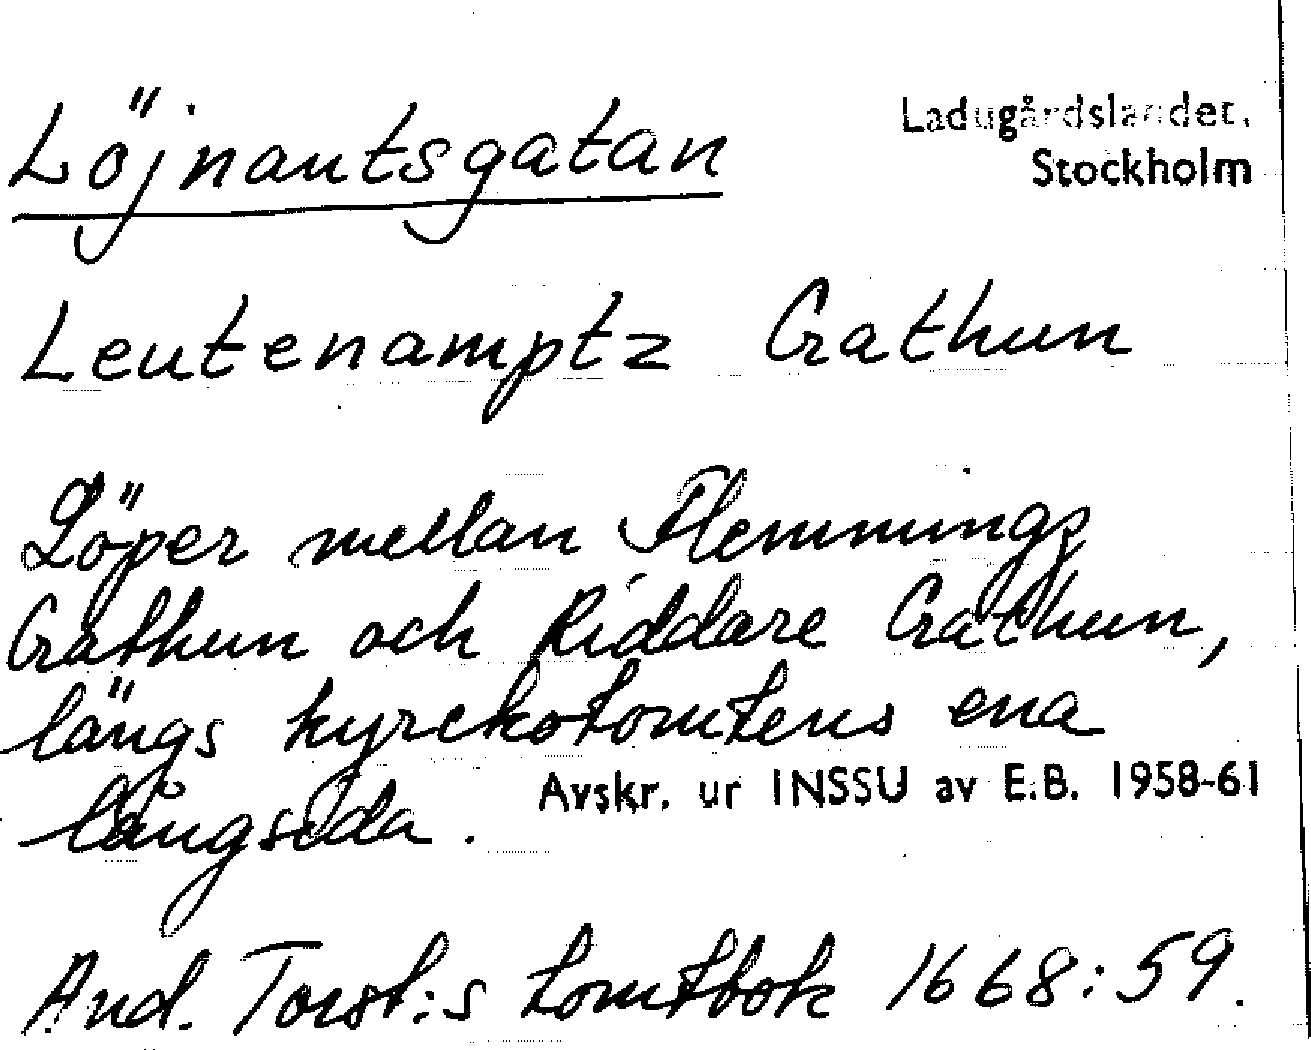 Löjnantsgatan
Ladugårdslandet,
Stockholm
Leutenamptz Grathun
Löper mellan Flemmings
Grathun och Riddare Grathun,
längs kyrckotomtens ena
långsida.
Avskr. ur INSSU av E.B. 1958-61
And. Torst:s tomtbok 1668:59.